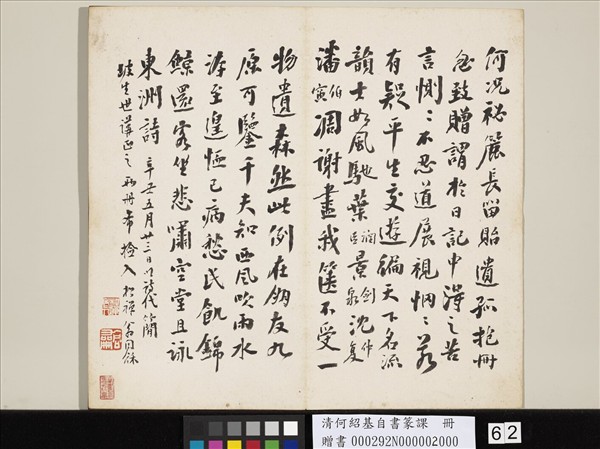 何況祕篋長留貽遺孤抱冊
忽致贈謂於日記中得之苦
言惻〻不忍道展視惘〻若
有疑平生交遊徧天下名流
韻士如風馳葉潤臣景劍泉沈仲復
潘伯寅凋謝盡我篋不受一
物遺森然此例在朋友九
原可鑒千夫知西風吹雨水
滂至遑恤己病愁民飢錦
鯨還客坐悲嘯空堂且詠
東洲詩 辛丑五月廿三日以詩代簡
世講正之 兩冊希撿入 松禪翁同龢
清何紹基自書篆課 冊
贈書 000292N000002000
62